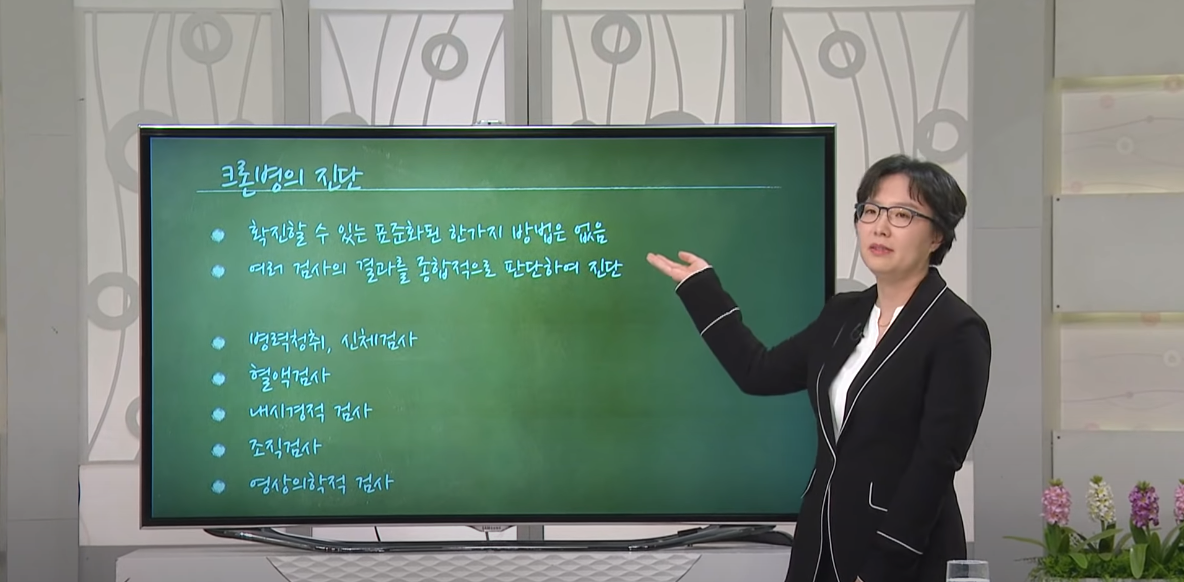 크론병의 진단
확진할 수 있는 표준화된 한가지 방법은 없음
여러 검사의 결과를 종합적으로 판단하여 진단
병력청취, 신체검사
혈액검사
내시경적 검사
조직검사
영상의학적 검사
SAMSUNG